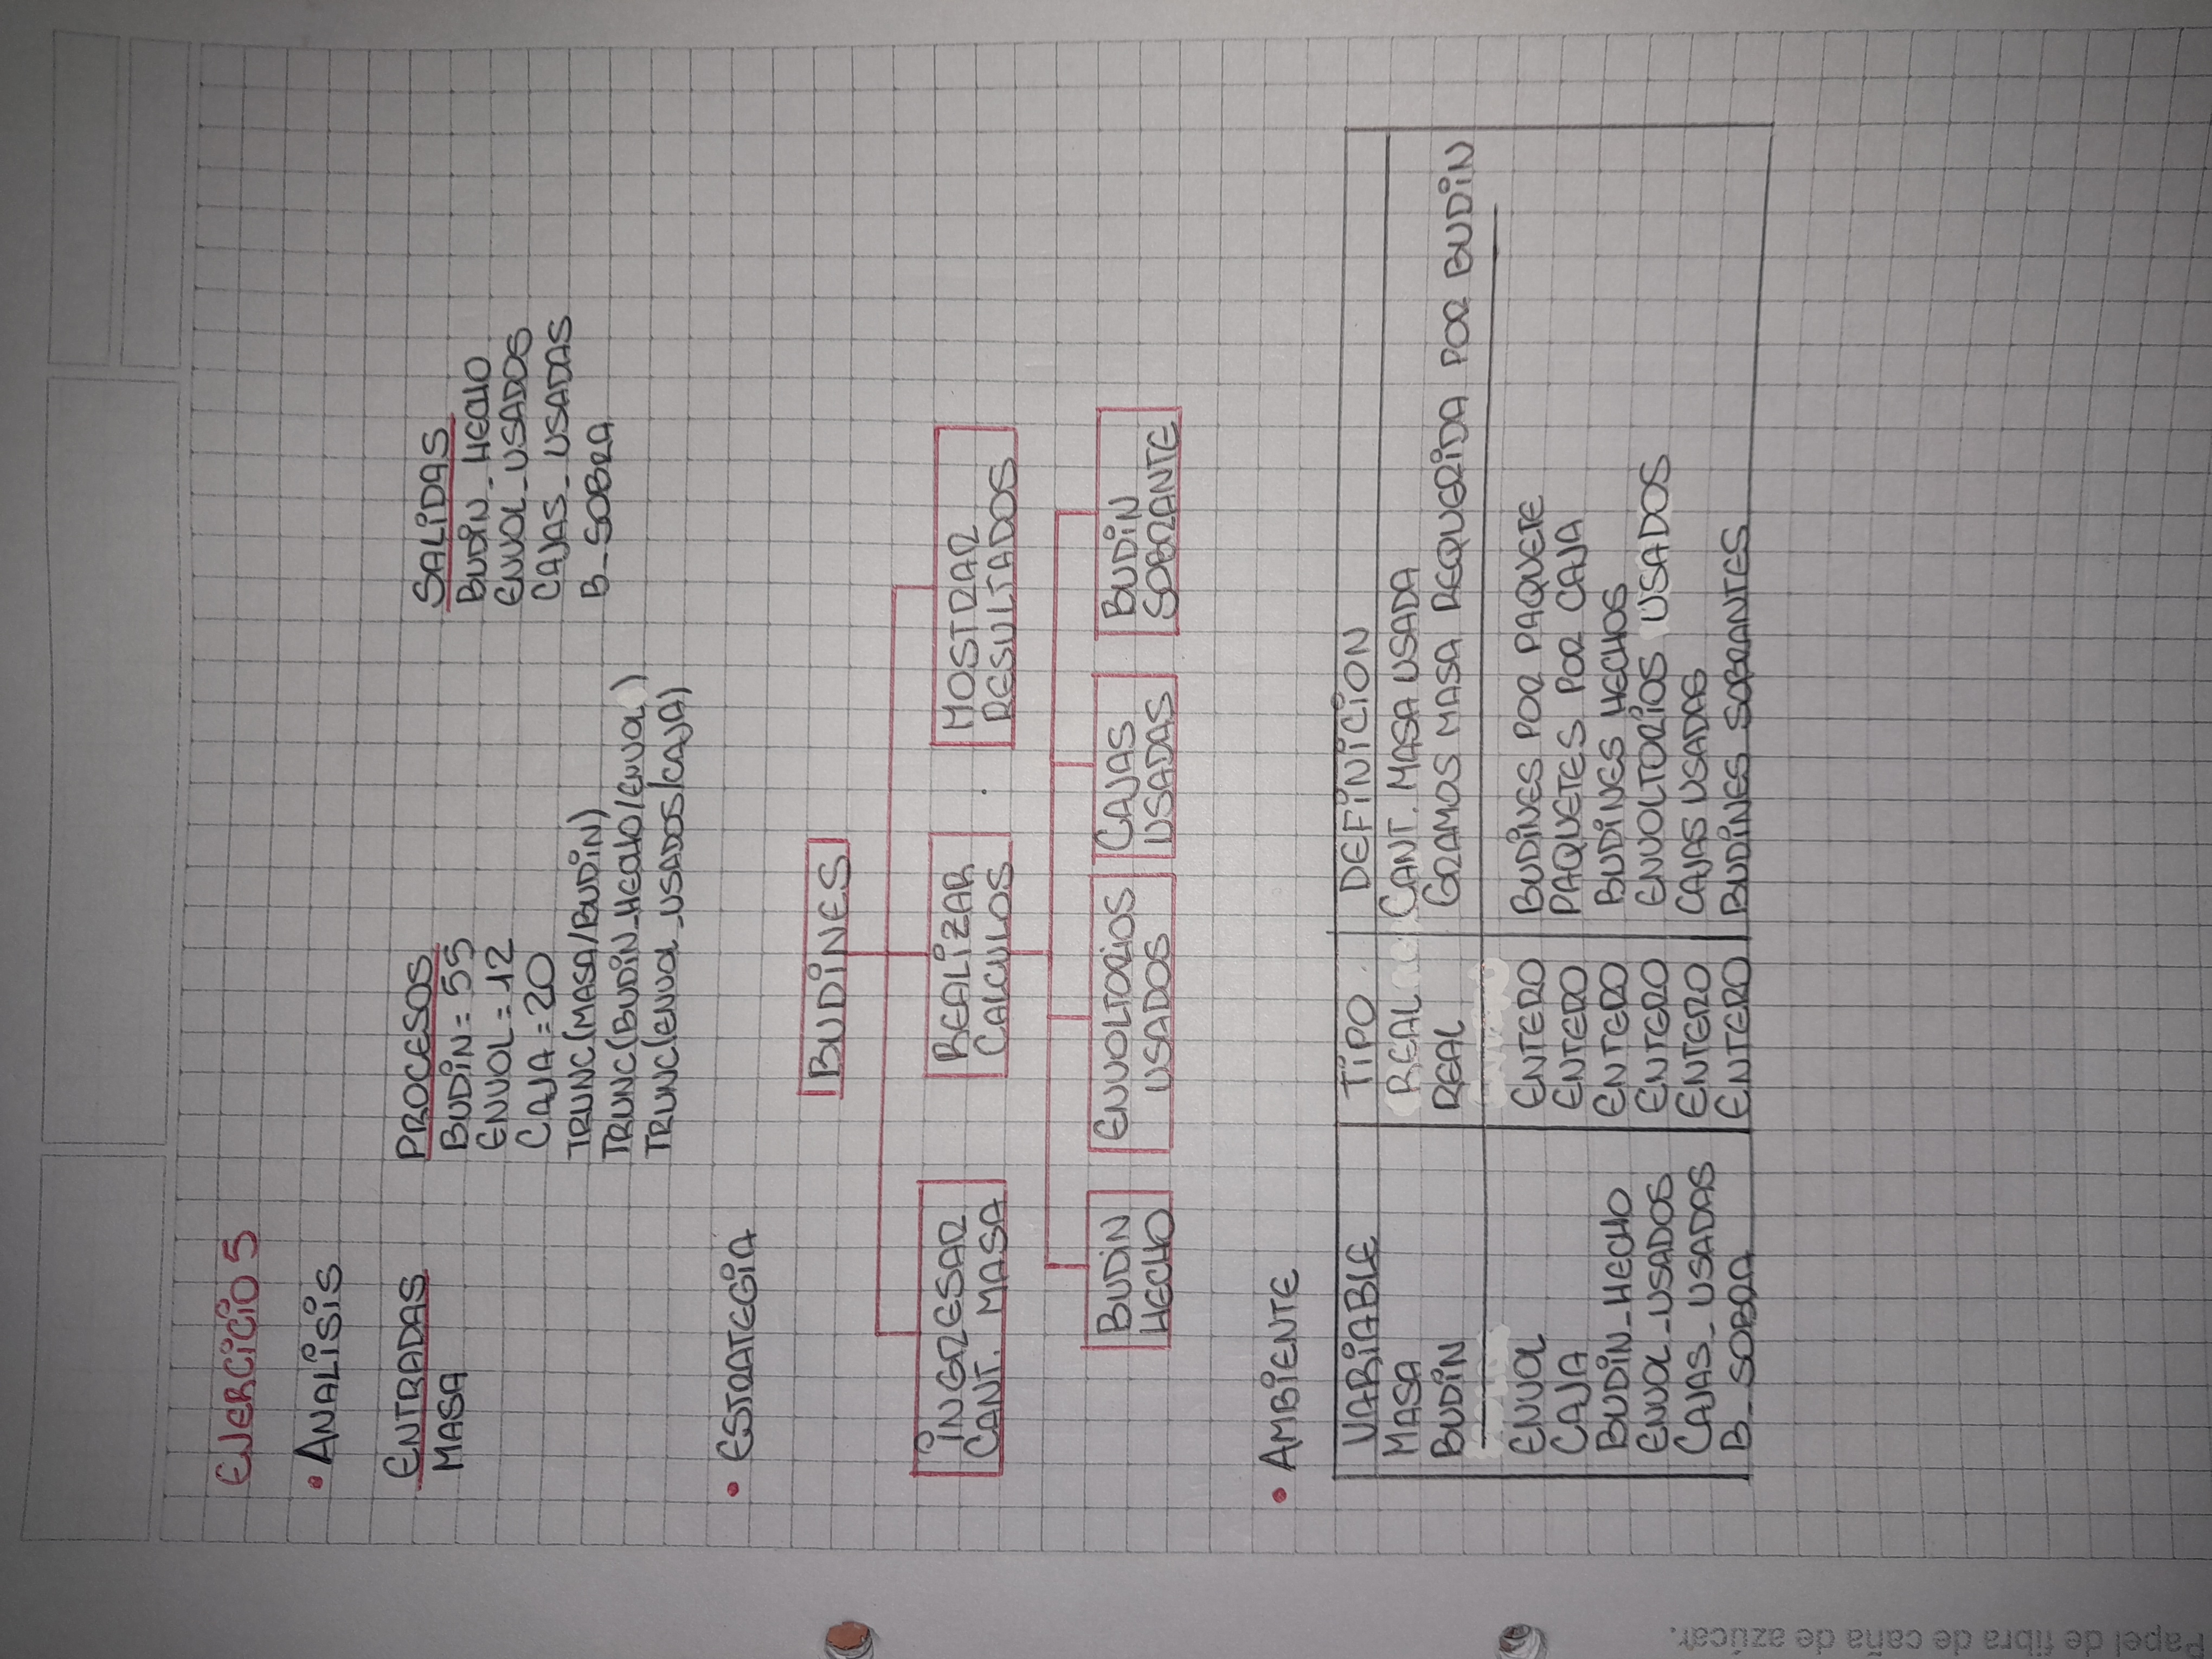 EJERCICIO 5
• ANALISIS
ENTRADAS
MASA
PROCESOS
BUDIN = 55
ENVOL = 12
CAJA = 20
TRUNC(MASA/BUDIN)
TRUNC(BUDIN_HECHO/ENVOL )
TRUNC(ENVOL_USADOS/CAJA)
SALIDAS
BUDIN_HECHO
ENVOL_USADOS
CAJAS_USADAS
B_SOBRA
• ESTRATEGIA
BUDINES
INGRESAR
CANT. MASA
REALIZAR
CALCULOS
MOSTRAR
RESULTADOS
BUDIN
HECHO
ENVOLTORIOS
USADOS
CAJAS
USADAS
BUDIN
SOBRANTE
• AMBIENTE
VARIABLE TIPO DEFINICION
MASA REAL CANT. MASA USADA
BUDIN REAL GRAMOS MASA REQUERIDA POR BUDIN
ENVOL ENTERO BUDINES POR PAQUETE
CAJA ENTERO PAQUETES POR CAJA
BUDIN_HECHO ENTERO BUDINES HECHOS
ENVOL_USADOS ENTERO ENVOLTORIOS USADOS
CAJAS_USADAS ENTERO CAJAS USADAS
B_SOBRA ENTERO BUDINES SOBRANTES
Papel de fibra de caña de azúcar.